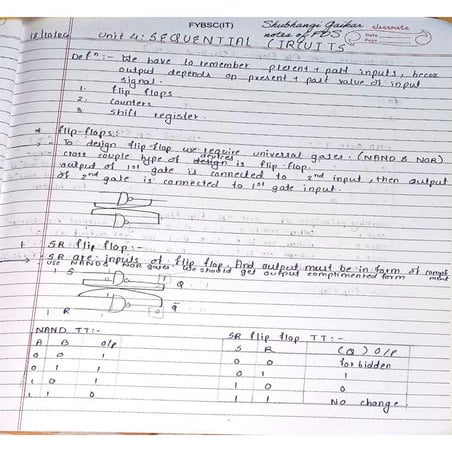 FYBSC(IT)
Shubhangi Gaikar
notes of FDS
classmate
Date
Page
Unit 4: SEQUENTIAL CIRCUITS
Defⁿ:- We have to remember present + past inputs, becoz
output depends on present + past value of input
signal.
1. flip flaps
2. counters
3. shift register.
* flip-flops:-
→ To design flip-flop we require universal gates. (NAND & NOR)
cross couple type of devices design is flip-flop.
output of 1st gate is connected to 2nd input, then output
of 2nd gate is connected to 1st gate input.
1. SR flip flop:-
→ SR are inputs of flip flop. And output must be in form of compli
ment
use NANDS NOR gates we should get output complimented form
1 S Q
1 R Q̅
NAND TT:-
A B o/p
0 0 1
0 1 1
1 0 1
1 1 0
SR flip flop TT:-
S R (Q) O/P
0 0 forbidden
0 1 1
1 0 0
1 1 NO change